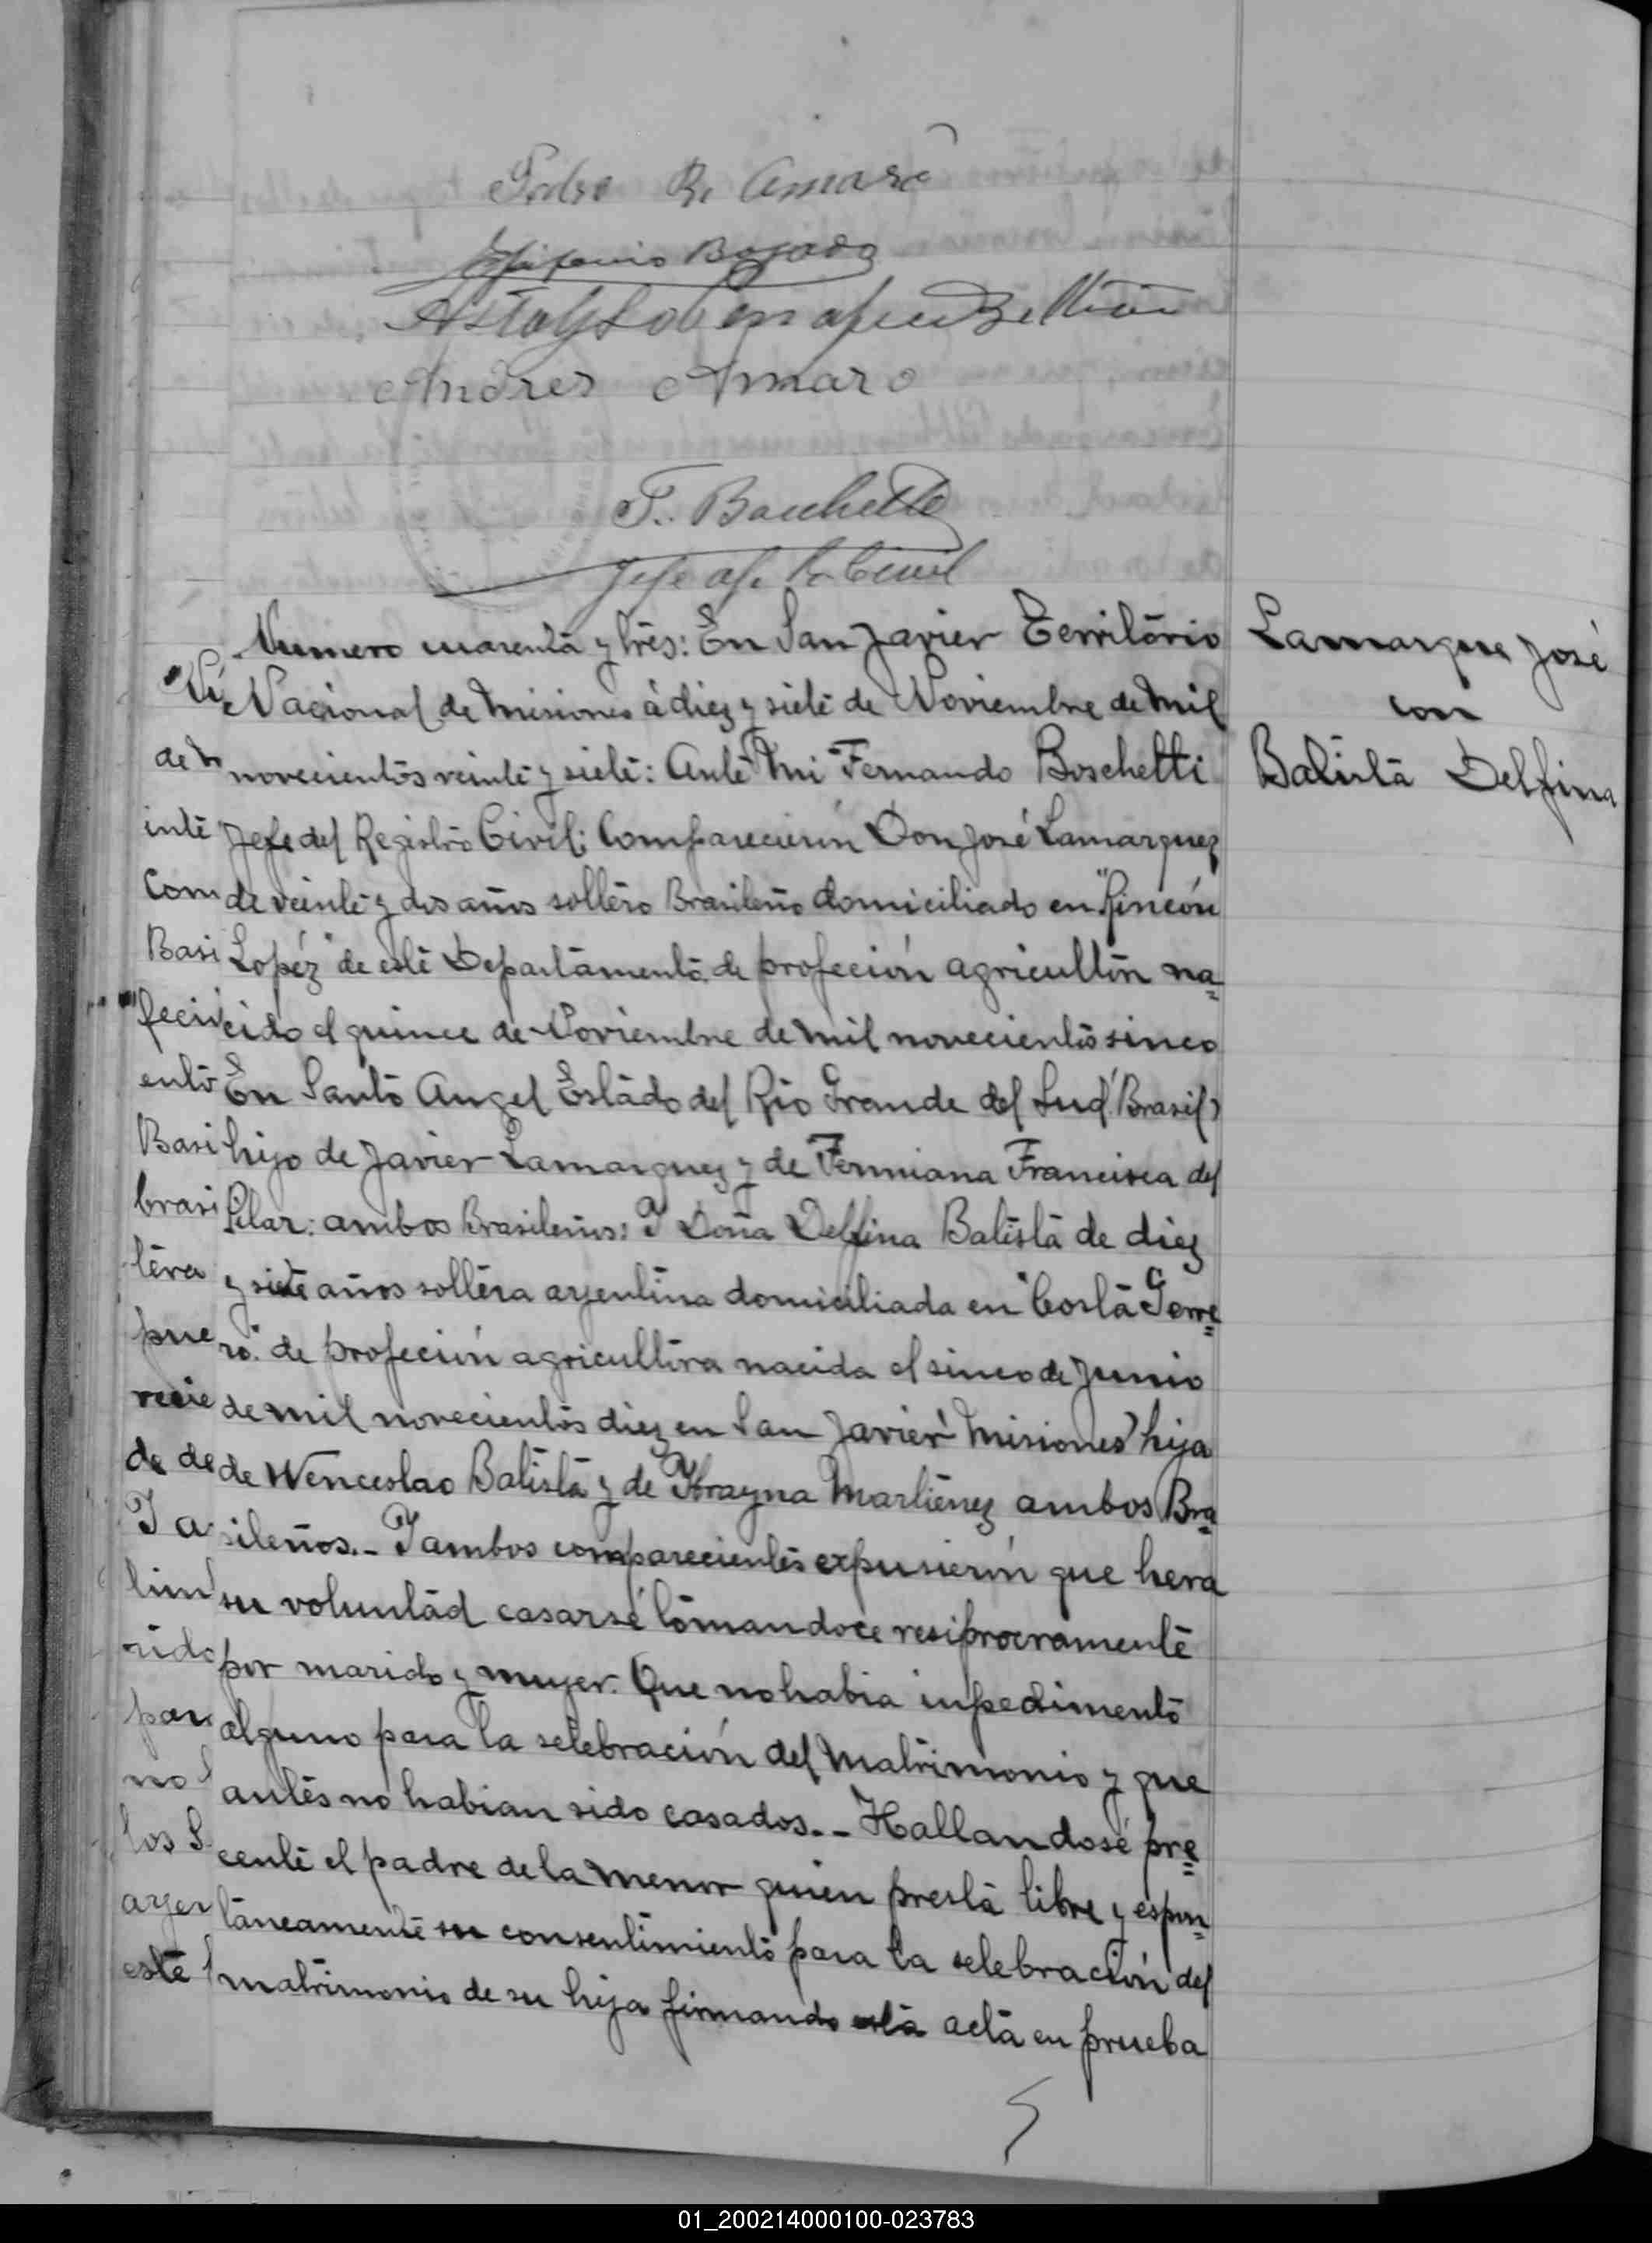 Pedro R. Amaro
Bogado
Andres Amaro
F. Boschetti
Jefe del R. Civil
Numero cuarenta y tres: En San Javier Territorio
Nacional de Misiones á diez y siete de Noviembre de mil
novecientos veinte y siete: Ante Mi Fernando Boschetti
Jefe del Registro Civil: Comparecieron Don José Lamarquez
de veinte y dos años soltero Brasileño domiciliado en "Rincón
Lopéz" de este Departamento de profeción agricultor na=
cido el quince de Noviembre de mil novecientos sinco
En Santo Angel Estado del Rio Grande del Sud (Brasil)
hijo de Javier Lamarquez y de Fermiana Francisca del
Pilar: ambos Brasileños: Y Doña Delfina Batista de diez
y siete años soltera argentina domiciliada en "Costa Porte=
ro" de profeción agricultora nacida el sinco de Junio
de mil novecientos diez en San Javier (Misiones) hija
de Wenceslao Batista y de Martiénez ambos Bra=
sileños.- Y ambos comparecientes expusierón que hera
su voluntad casarse tomandoce resiprocramente
por marido y muger. Que no habia inpedimento
alguno para la selebración del Matrimonio y que
antes no habian sido casados.- Hallandosé pre=
cente el padre de la menor quien presta libre y espon=
taneamente su consentimiento para la selebración del
matrimonio de su hija firmando esta acta en prueba
Lamarque José
con
Batista Delfina
de
inte
Com
Basi
feció
ento
Basi
brasi
tera
pue
recie
de de
Y a
rido
par
no
los
argen
este
01_200214000100-023783